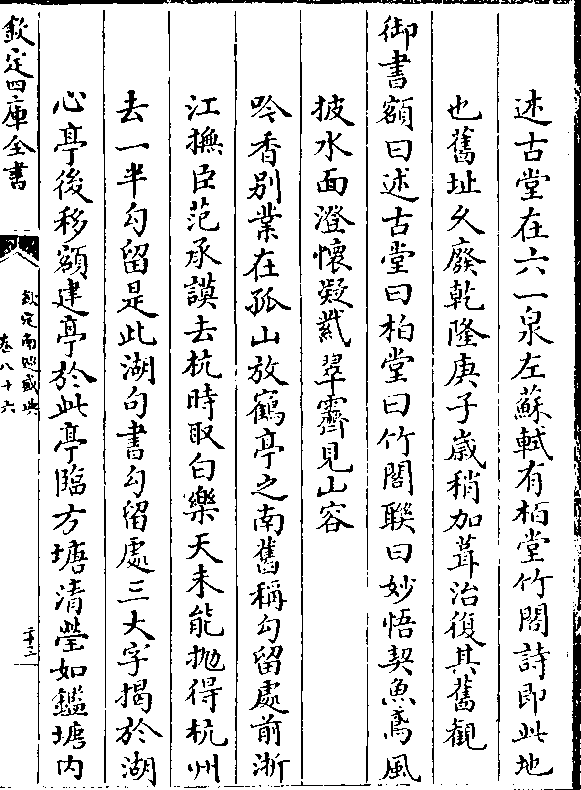 述古堂在六一泉左蘇軾有柏堂竹閣詩即此地
也舊址久廢乾隆庚子嵗稍加葺治復其舊觀
御書額曰述古堂曰柏堂曰竹閣聯曰妙悟契魚鳶風
披水面澄懷凝黻翠霽見山容
吟香别業在孤山放鶴亭之南舊稱勾留處前浙
江撫臣范承謨去杭時取白樂天未能抛得杭州
去一半勾留是此湖句書勾留處三大字揭於湖
心亭後移額建亭於此亭臨方塘清瑩如鑑塘内
欽定四庫全書
欽定南巡盛典
卷八十六
二十二